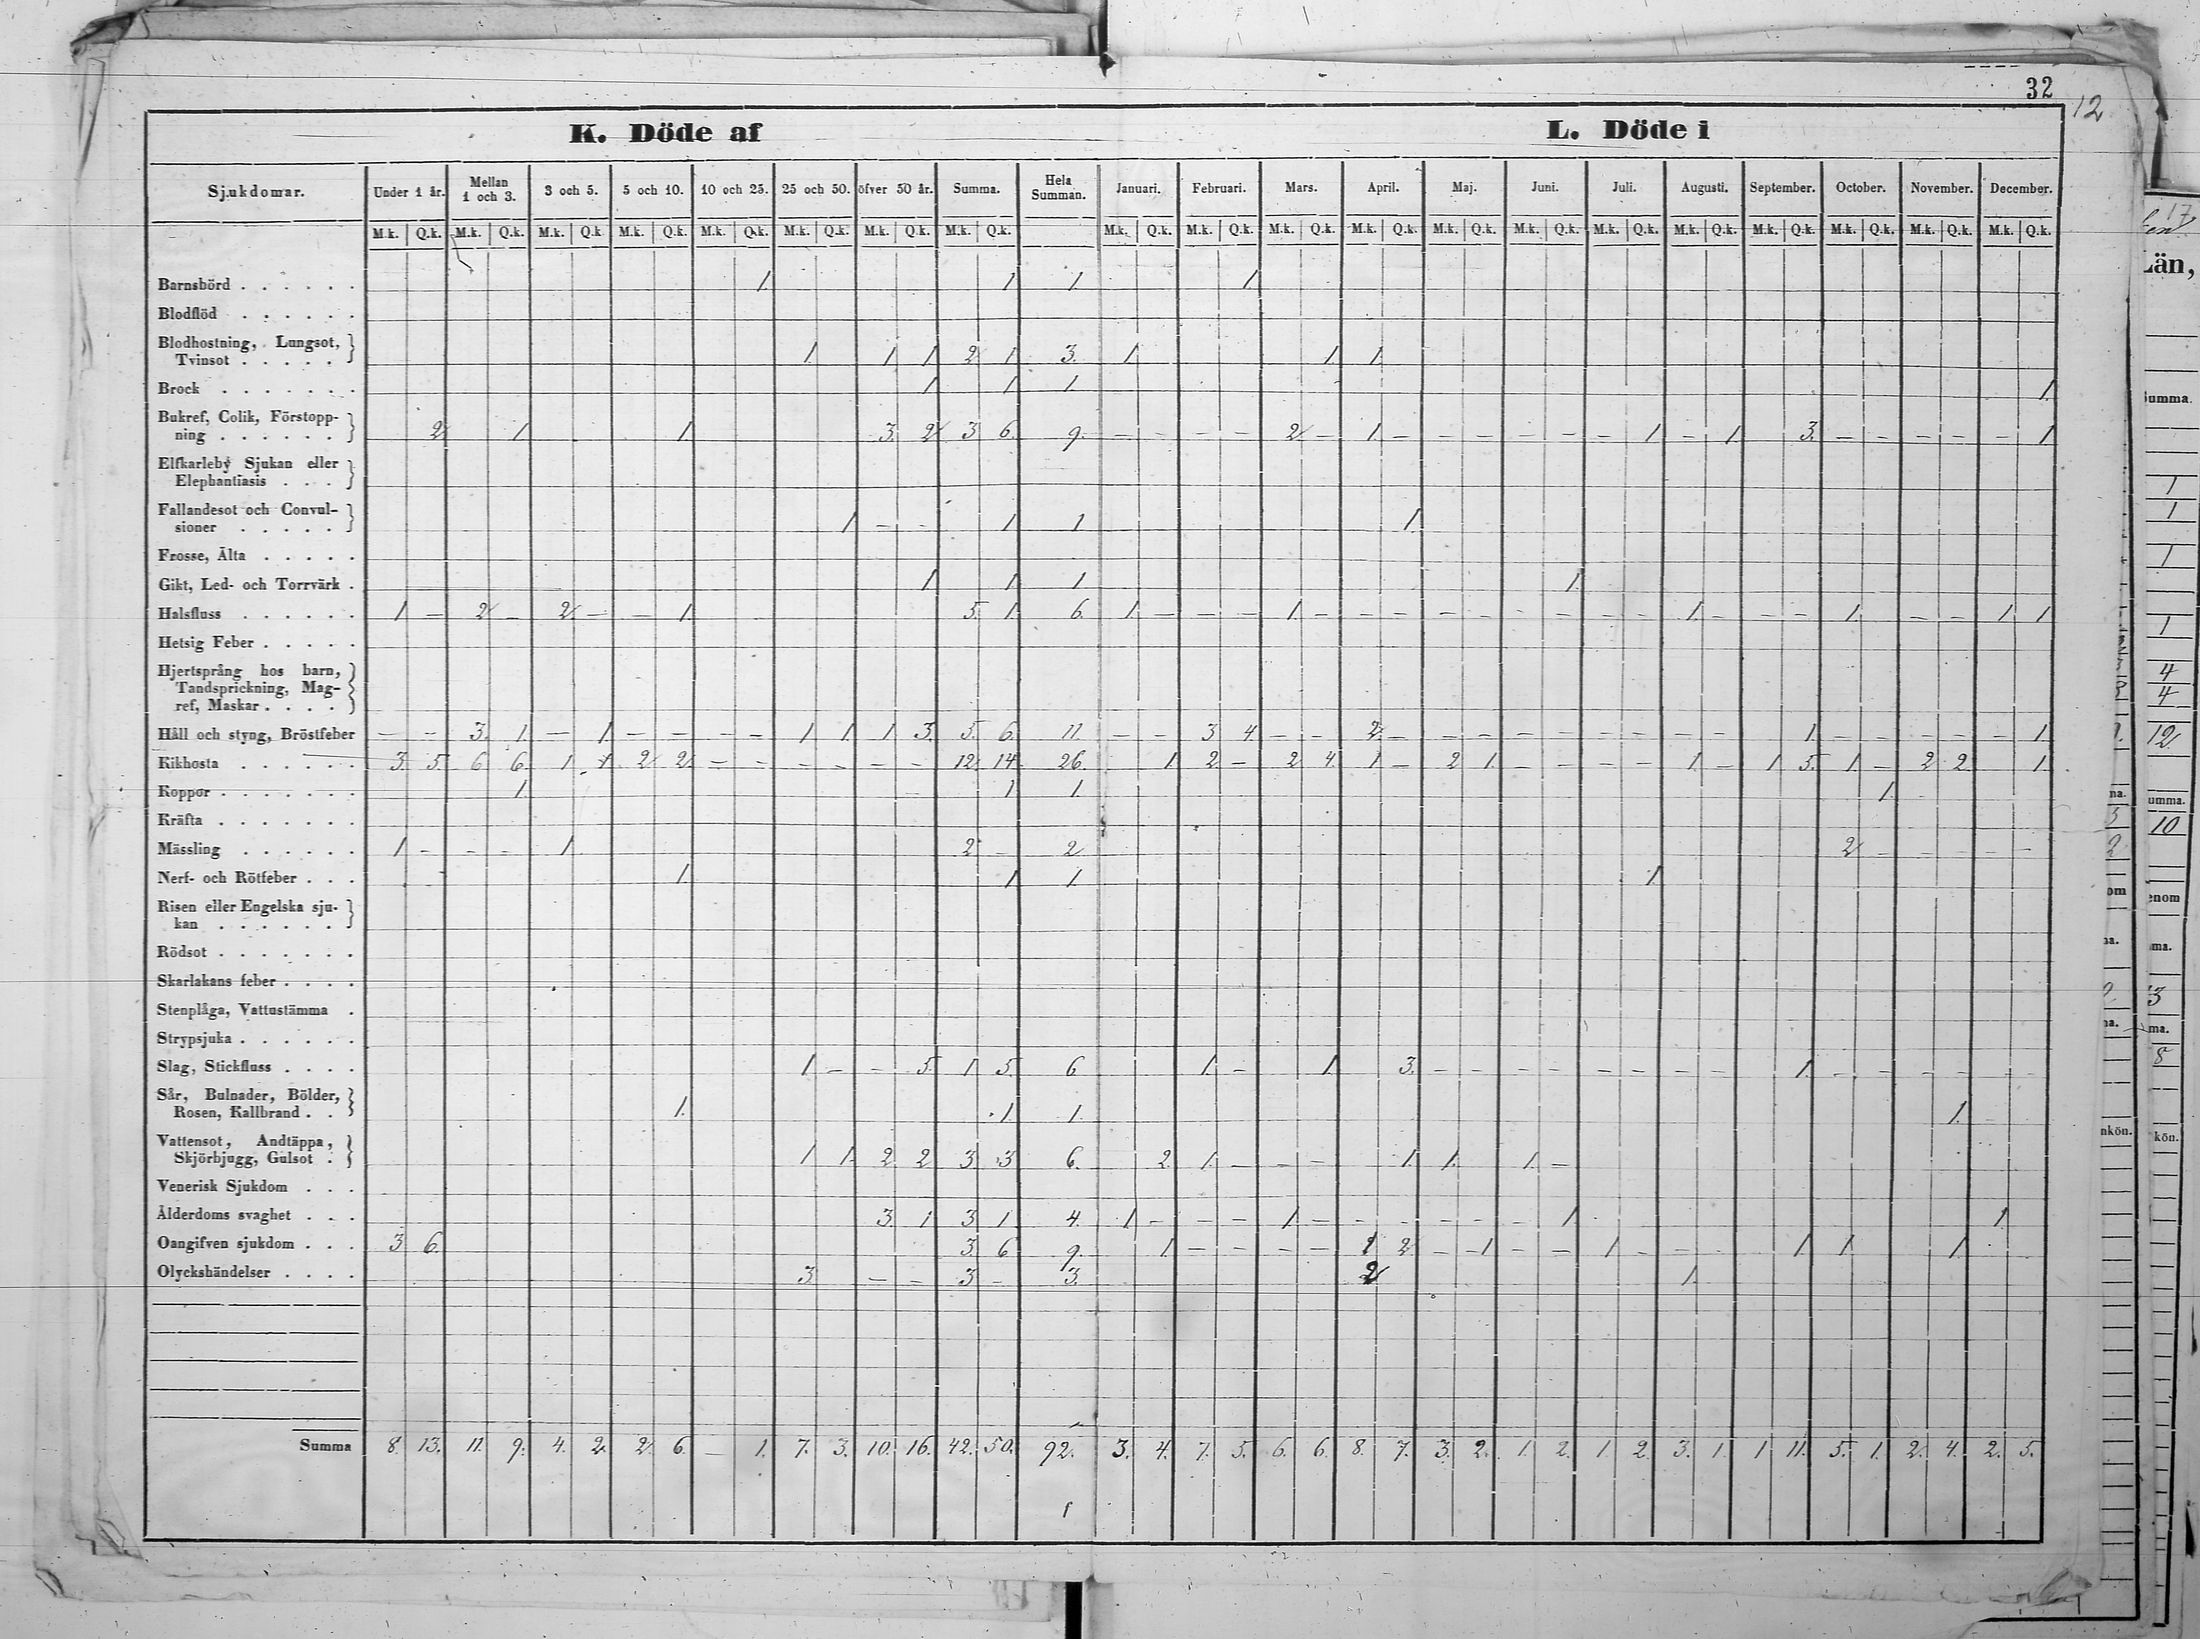 32
12
K. Döde af L. Döde i
Sjukdomar. Under 1 år. Mellan 1 och 3. 3 och 5. 5 och 10. 10 och 25. 25 och 50. öfver 50 år. Summa. Hela Summan. Januari. Februari. Mars. April. Maj. Juni. Juli. Augusti. September. October. November. December.
M.k. Q.k. M.k. Q.k. M.k. Q.k. M.k. Q.k. M.k. Q.k. M.k. Q.k. M.k. Q.k. M.k. Q.k. M.k. Q.k. M.k. Q.k. M.k. Q.k. M.k. Q.k. M.k. Q.k. M.k. Q.k. M.k. Q.k. M.k. Q.k. M.k. Q.k. M.k. Q.k. M.k. Q.k. M.k. Q.k.
Barnsbörd . . . . . . 1. 1 1 1.
Blodflöd . . . . . .
Blodhostning, Lungsot,
Tvinsot . . . . . 1 1 1 2 1 3. 1 1 1
Brock . . . . . . . 1 1 1 1.
Bukref, Colik, Förstopp-
ning . . . . . . 2 1 1. 3. 2 3 6. 9. – – – – 2 – 1 – – – – – – 1 – 1 3. – – – – – 1
Elfkarleby Sjukan eller
Elephantiasis . . .
Fallandesot och Convul-
sioner . . . . . 1 – – 1 1 1
Frosse, Älta . . . . .
Gikt, Led- och Torrvärk . 1 1 1 1.
Halsfluss . . . . . . 1 – 2 – 2 – – 1. 5. 1. 6. 1. – – – 1 – – – – – – – – – 1. – – – 1. – – 1 1
Hetsig Feber . . . . .
Hjertsprång hos barn,
Tandsprickning, Mag-
ref, Maskar . . . .
Håll och styng, Bröstfeber – – 3. 1. – 1 – – – – 1 1. 1 3. 5. 6. 11. – – 3 4 – – 2 – – – – – – – – – – 1 – – – – – 1.
Kikhosta . . . . . . 3. 5. 6 6. 1 1 2 2. – – – – – – 12. 14. 26. 1 2 – 2 4. 1 – 2 1. – – – – 1. – 1 5. 1. – 2 2. 1.
Koppor . . . . . . . 1. 1 1. 1.
Kräfta . . . . . . .
Mässling . . . . . . 1 – – – 1 2 – 2 2 – – – –
Nerf- och Rötfeber . . . 1 1 1 1.
Risen eller Engelska sju-
kan . . . . . .
Rödsot . . . . . . .
Skarlakans feber . . . .
Stenplåga, Vattustämma .
Strypsjuka . . . . . .
Slag, Stickfluss . . . . 1 – – 5. 1 5. 6 1. – 1. 3. – – – – – – – – – 1. – – – – – –
Sår, Bulnader, Bölder,
Rosen, Kallbrand . . 1. 1 1. 1.
Vattensot, Andtäppa,
Skjörbjugg, Gulsot . 1 1. 2 2 3 3 6. 2. 1. – – – 1. 1. 1. –
Venerisk Sjukdom . . .
Ålderdoms svaghet . . . 3. 1 3 1 4. 1 – – – 1 – – – – – – 1 1.
Oangifven sjukdom . . . 3 6. 3. 6 9. 1 – – – – 1 2 – 1 – – 1 – – – 1 1 1
Olyckshändelser . . . . 3 – – 3 – 3. 2 1.
Summa 8. 13. 11. 9. 4. 2. 2. 6. – 1. 7. 3. 10. 16. 42. 50. 92. 3. 4. 7. 5. 6. 6. 8. 7. 3. 2. 1. 2. 1. 2. 3. 1. 1 11. 5. 1. 2. 4. 2. 5.
17
Län,
Summa.
1
1
1
1
4
4
12
umma.
10
enom
ma.
3
ma.
8
kön.